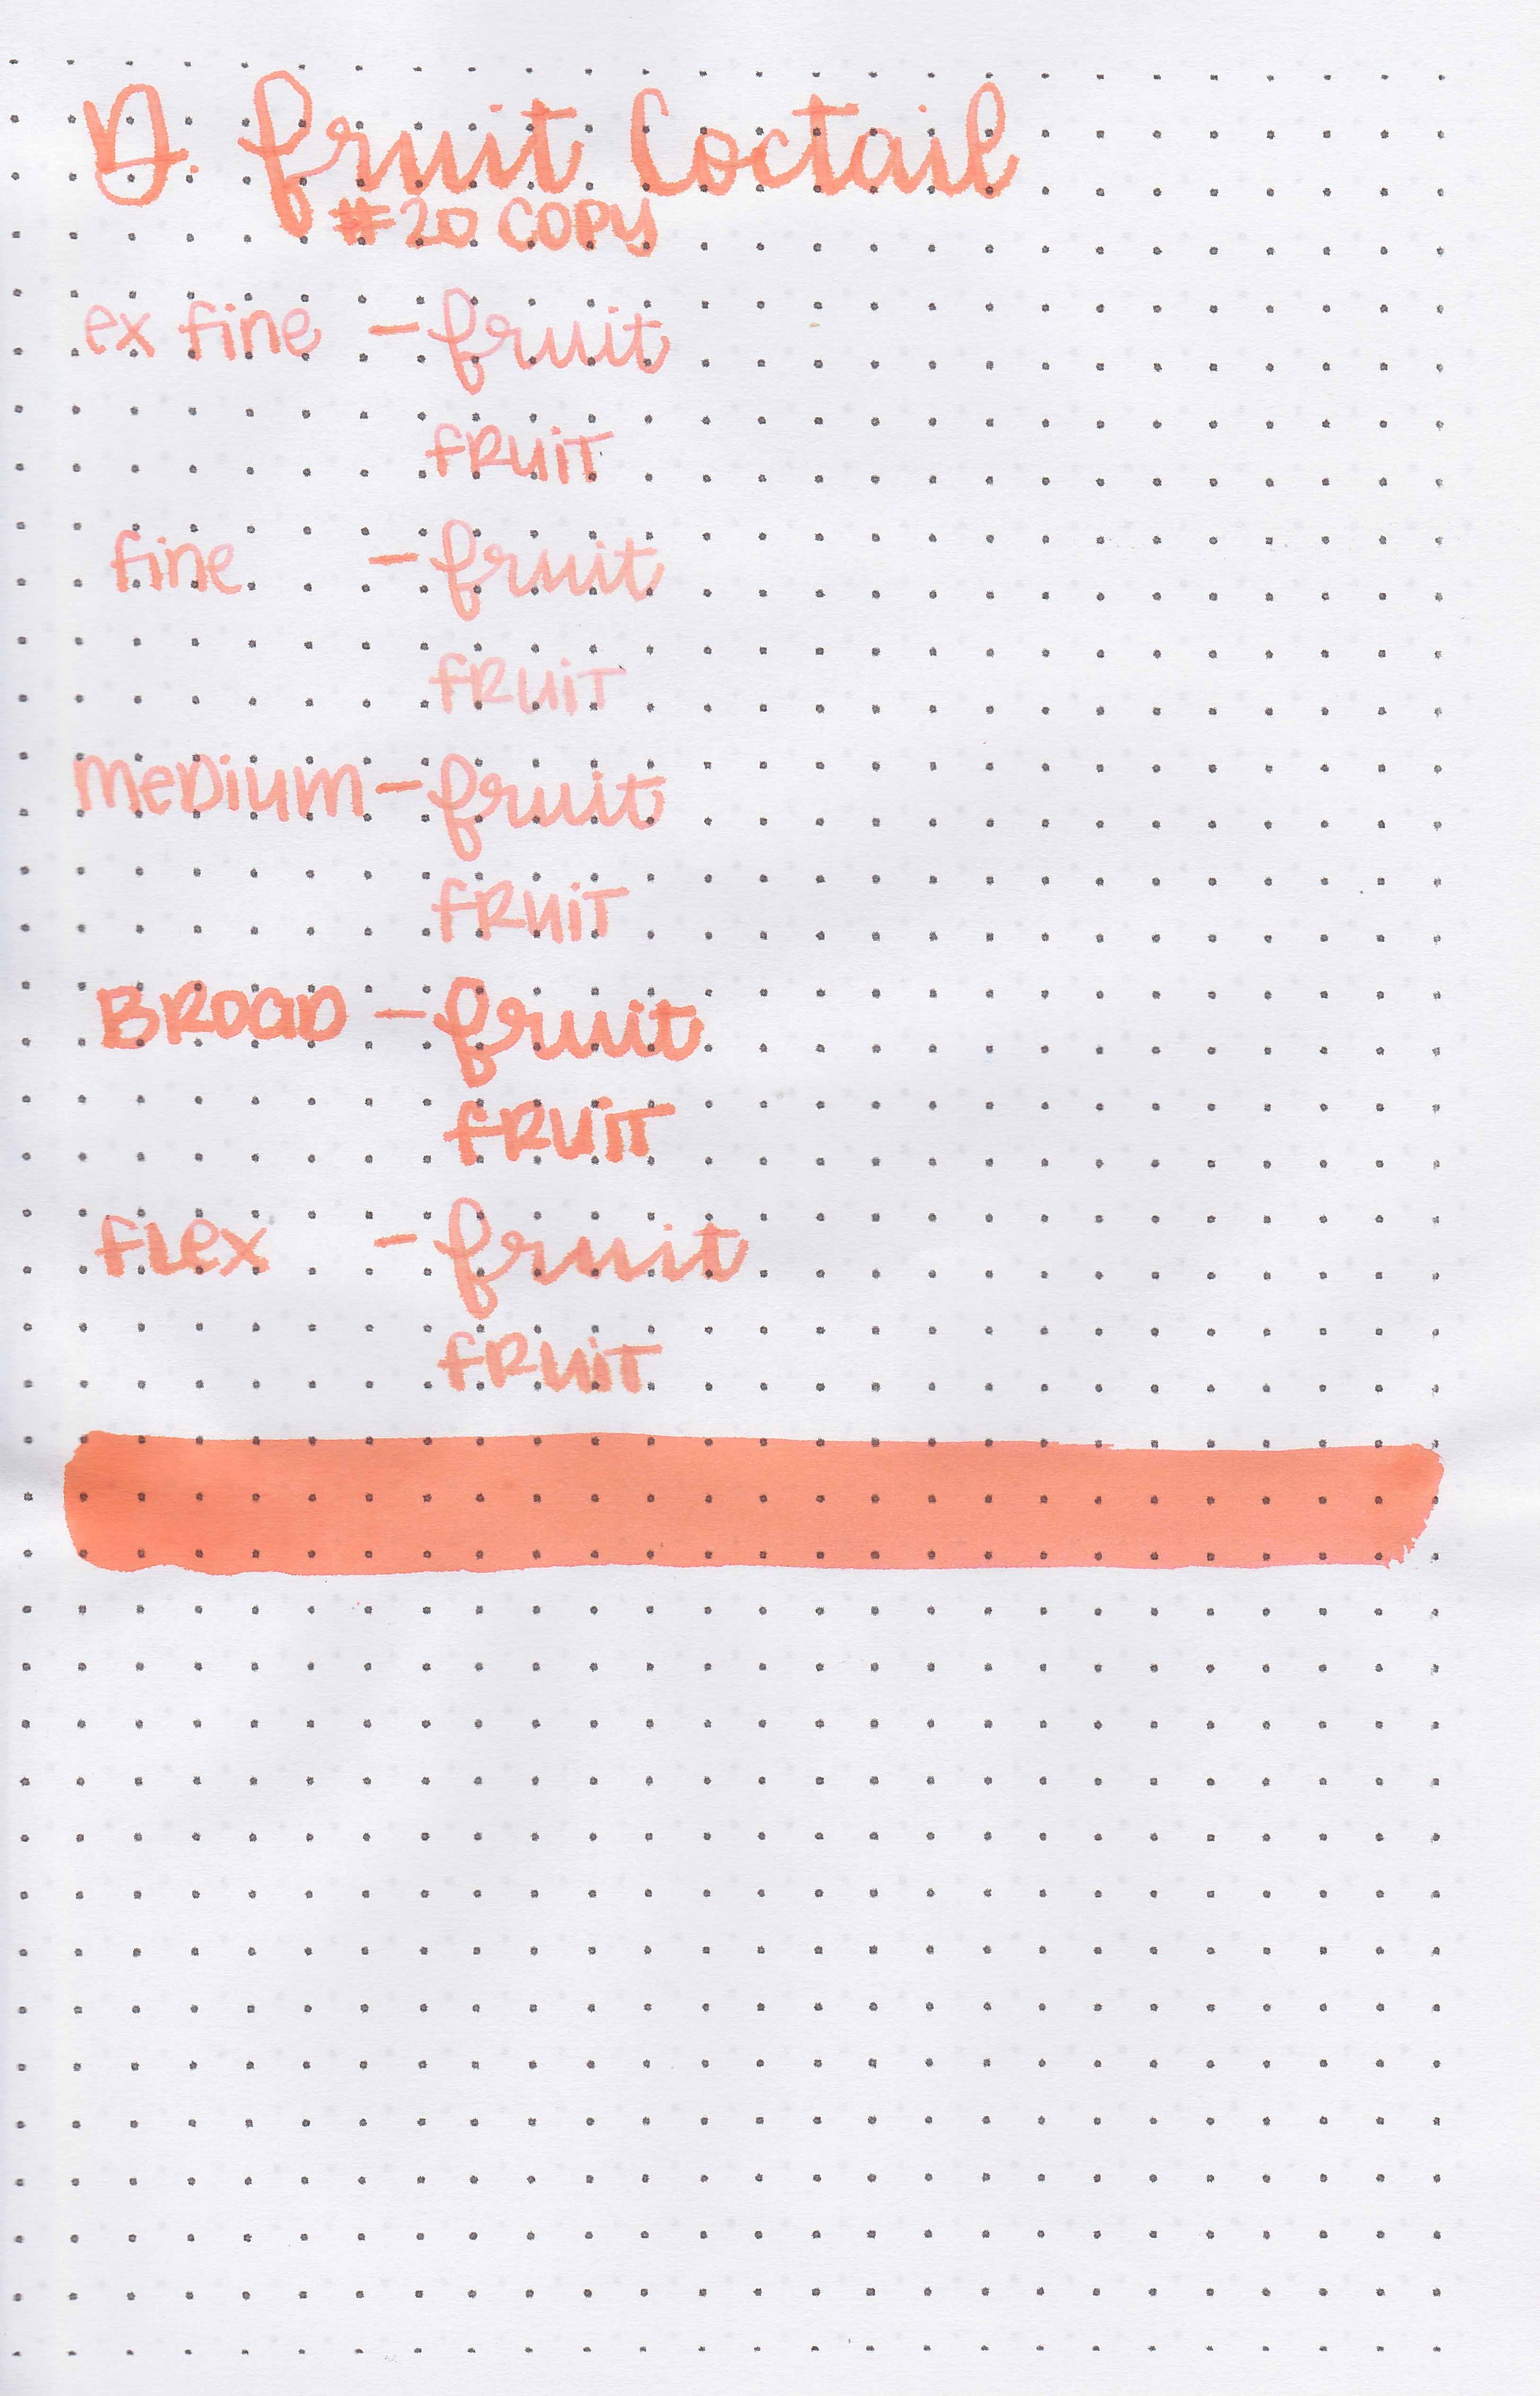 D. Fruit Coctail
#20 COPY
ex fine - fruit
FRUIT
fine - fruit
FRUIT
MeDium - fruit
FRUIT
BROAD - fruit
FRUIT
FLex - fruit
FRUIT